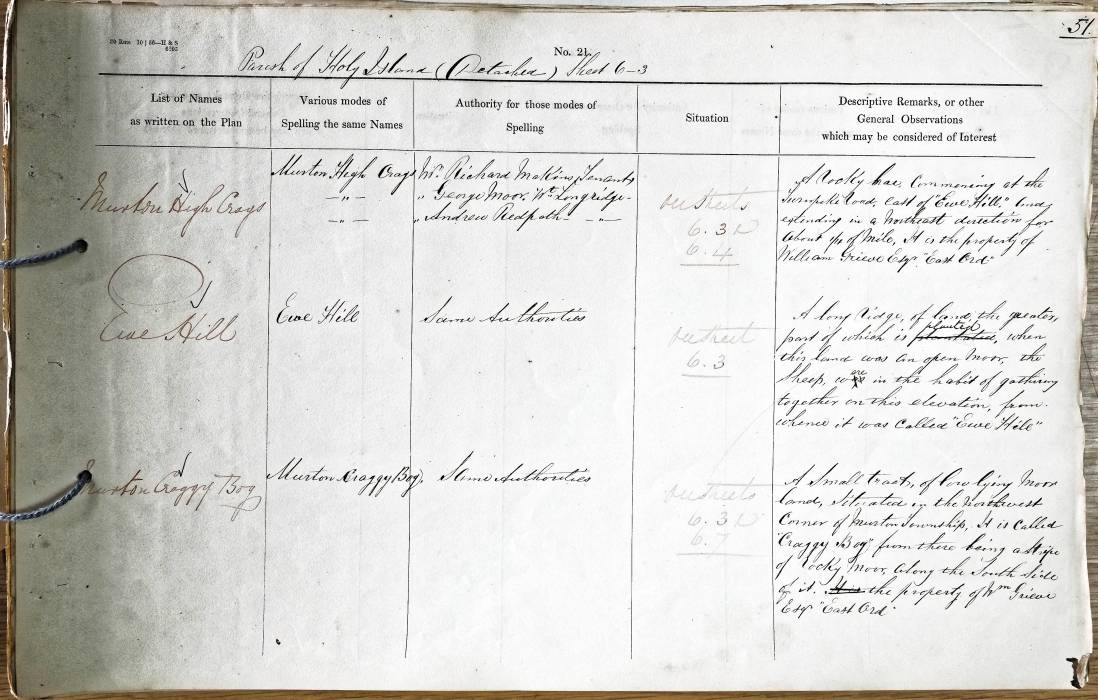 51
No. 21.
Parish of Holy Island (Detached) Sheet 6-3
List of Names
as written on the Plan
Various modes of
Spelling the same Names
Authority for those modes of
Spelling
Situation
Descriptive Remarks, or other
General Observations
which may be considered of Interest
Murton High Crags
Murton High Crags
—„—
—„—
Mr. Richard Makins, Tenants
„ George Moor, Wm Longridge
„ Andrew Redpath —„—
On Sheets
6.3
6.4
A Rocky bar, Commencing at the
Turnpike road, east of "Ewe Hill" and
extending in a Northeast direction for
about of Mile, It is the property of
William Grieve Esqr. "East Ord"
Ewe Hill
Ewe Hill
Same Authorities
On Sheet
6.3
A long ridge, of land, the greater,
part of which is planted, when
this land was an open Moor, the
Sheep, were in the habit of gathering
together on this elevation, from
whence it was called "Ewe Hill"
Murton Craggy Bog
Murton Craggy Bog
Same Authorities
On Sheets
6.3
6.7
A Small tract, of low lying Moor
land, Situated in the Northwest
Corner of Murton Township, It is called
"Craggy Bog" from there being a stripe
of rocky Moor, along the South Side
of it. It is the property of Wm Grieve
Esqr "East Ord"